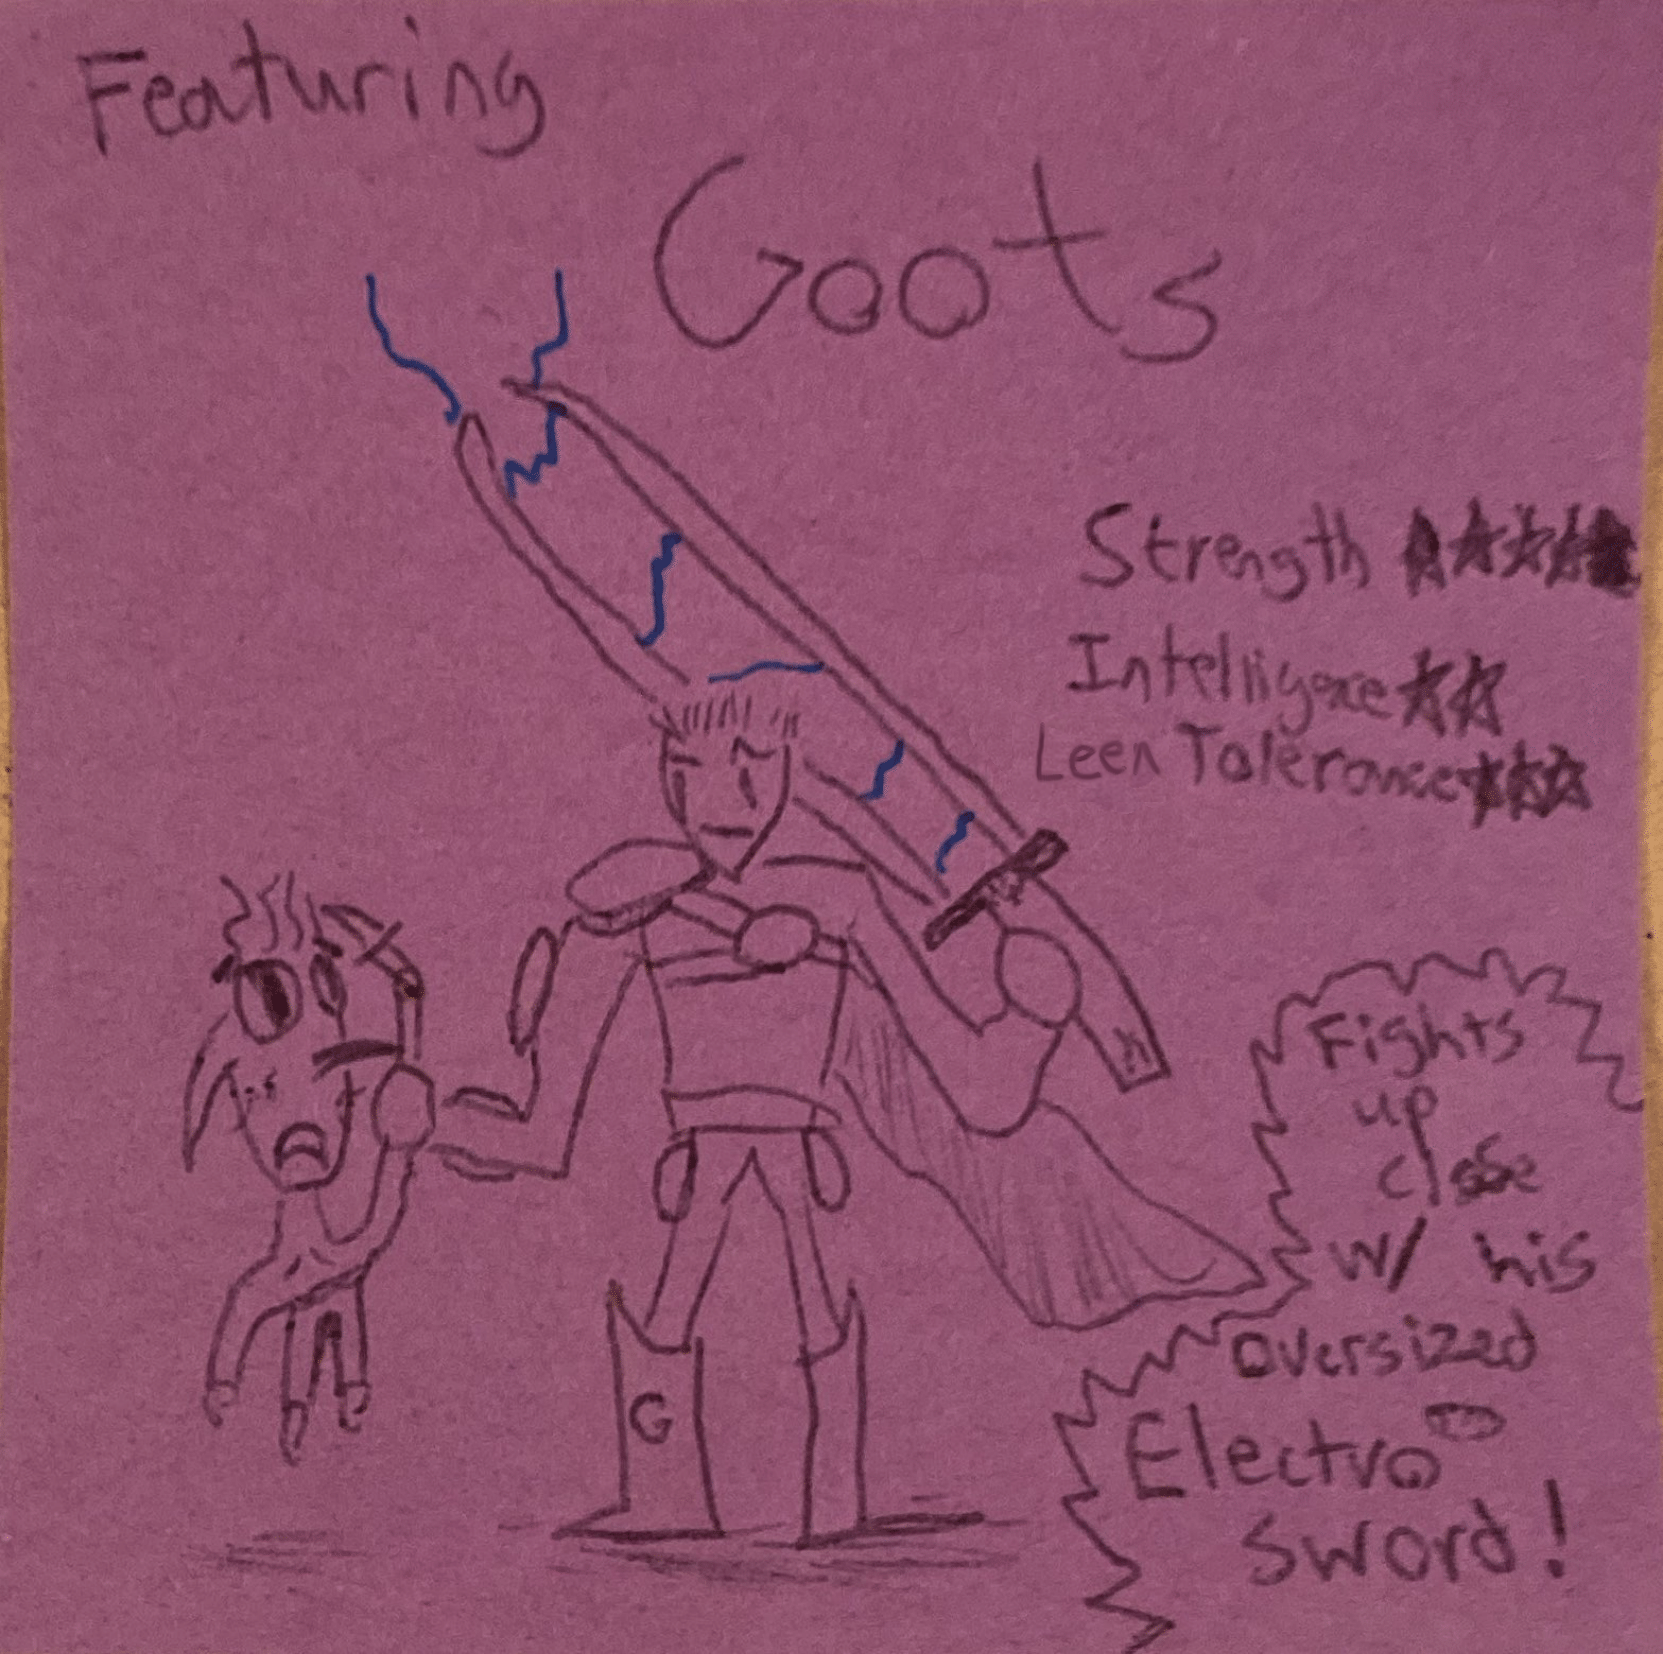 Featuring
Goots
Strength ★★★★★
Intelligence ★★
Leen Tolerance ★★★
G
Fights
up
close
w/ his
oversized
Electro
sword!